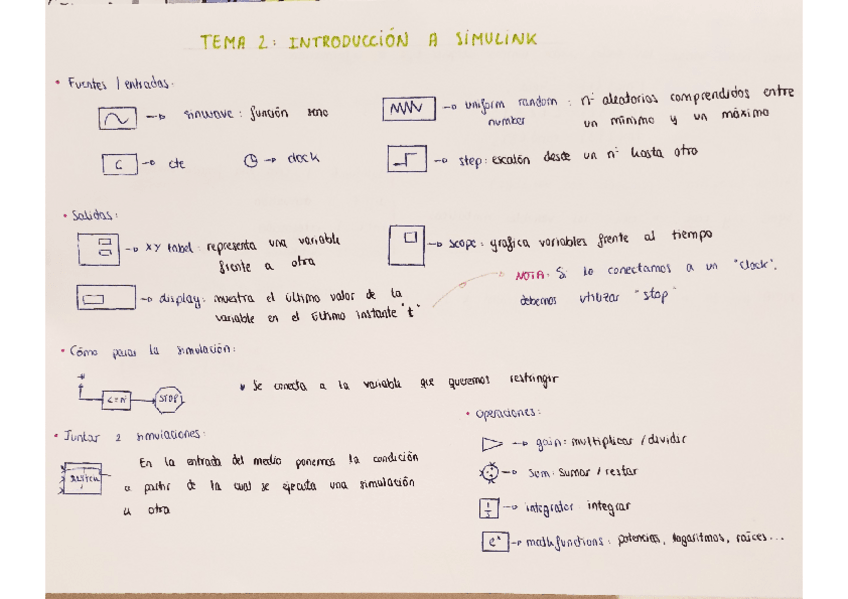 TEMA 2: INTRODUCCIÓN A SIMULINK
• Fuentes / entradas:
→ sinwave: función seno
→ uniform random number : nº aleatorios comprendidos entre
un mínimo y un máximo
C → cte
→ clock
→ step: escalón desde un nº hasta otro
• Salidas:
→ XY tabel: representa una variable
frente a otra
→ scope: grafica variables frente al tiempo
NOTA: Si lo conectamos a un "clock",
debemos utilizar "stop"
→ display: muestra el último valor de la
variable en el último instante "t"
• Cómo parar la simulación:
STOP
Se conecta a la variable que queremos restringir
• Juntar 2 simulaciones:
En la entrada del medio ponemos la condición
a partir de la cual se ejecuta una simulación
u otra
• Operaciones:
→ gain: multiplicar / dividir
→ Sum: Sumar / restar
1/s → integrator: integrar
eˣ → mathfunctions: potencias, logaritmos, raíces...